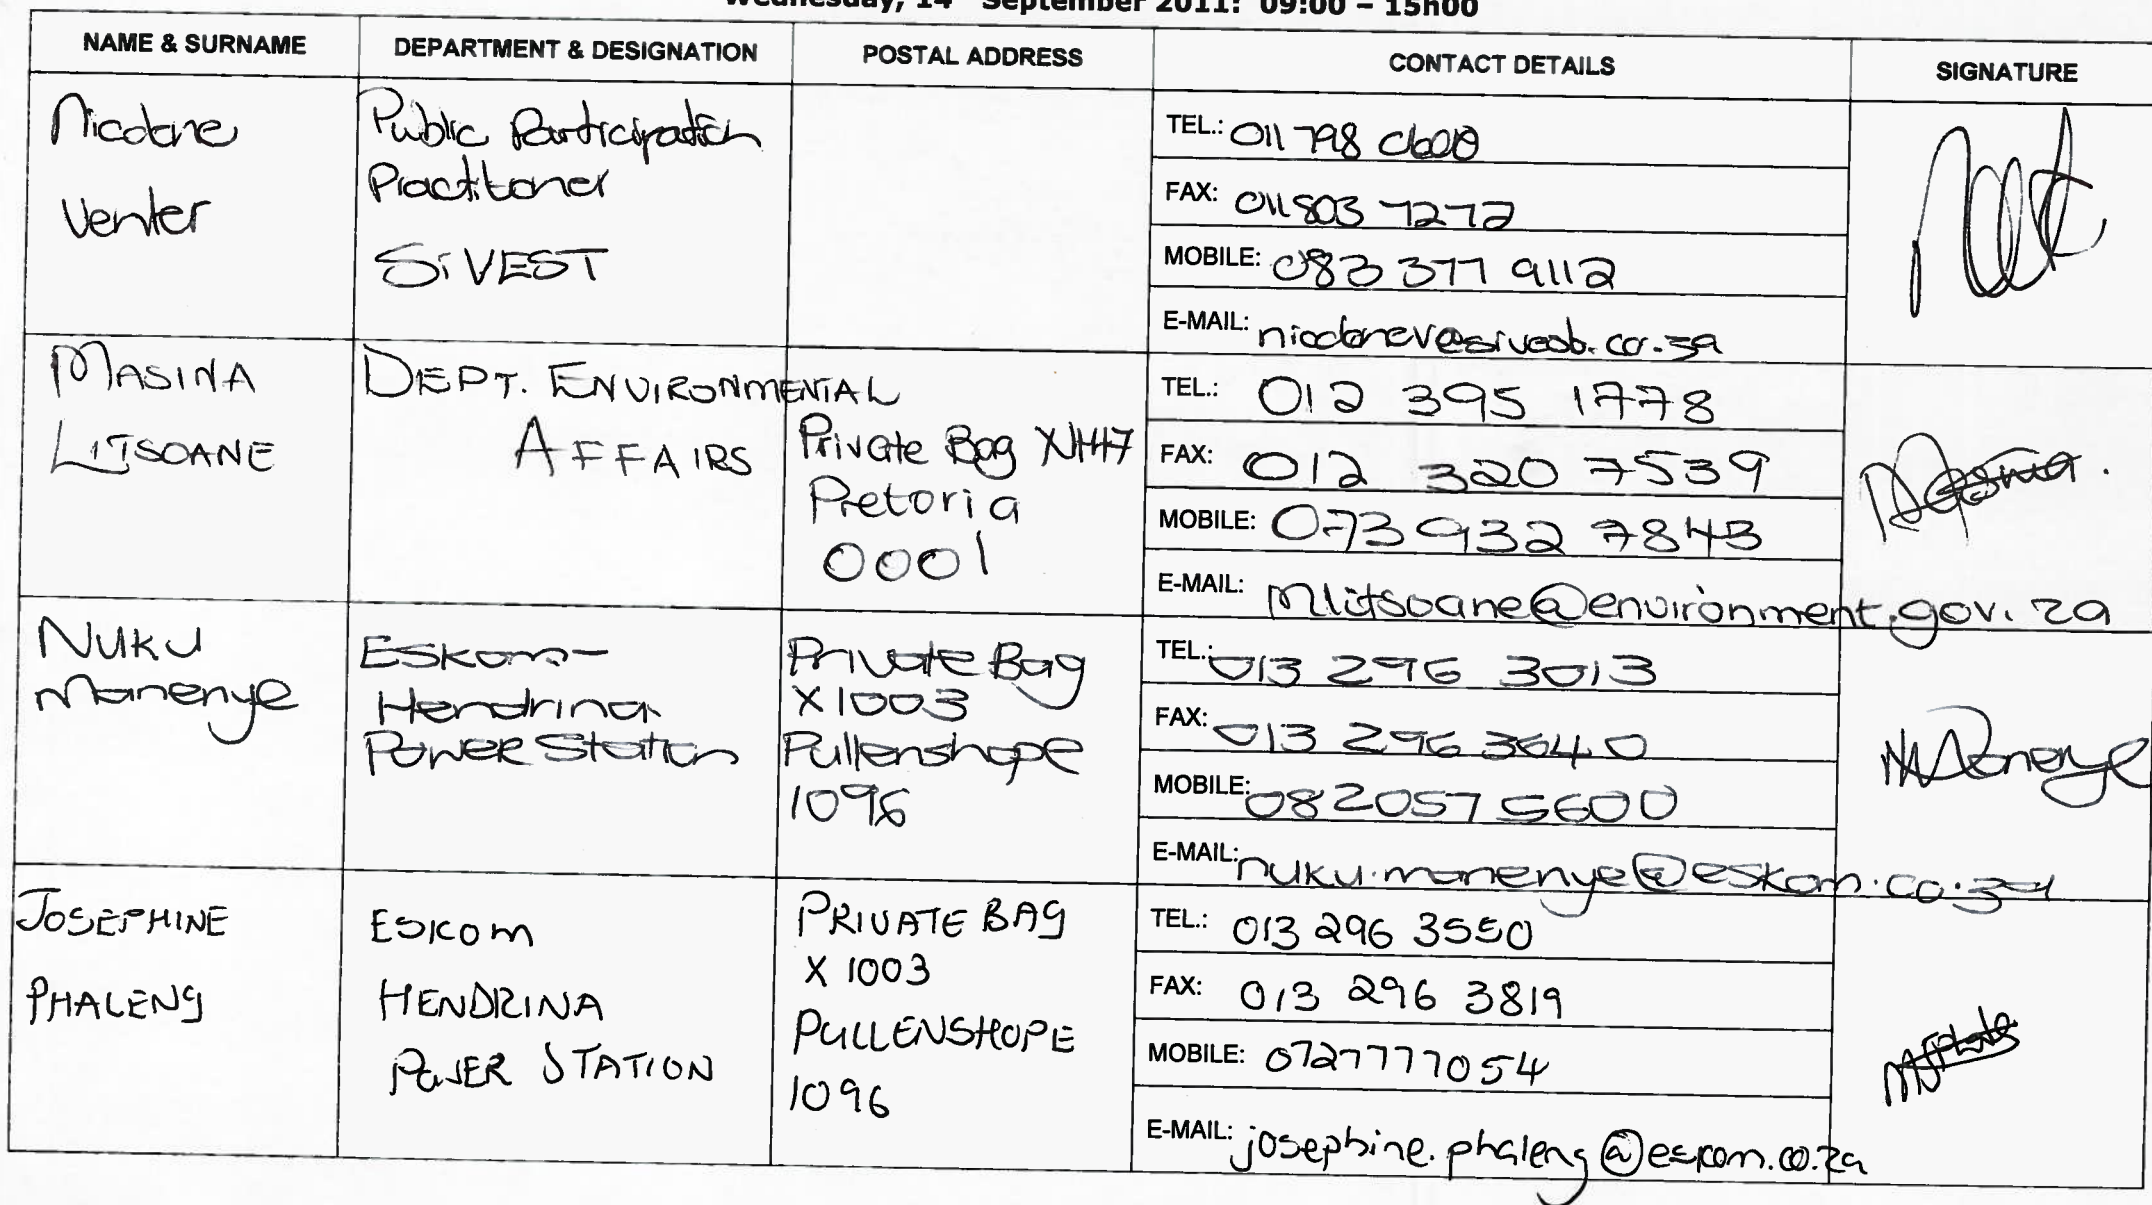 Wednesday, 14 September 2011: 09:00 – 15h00
NAME & SURNAME DEPARTMENT & DESIGNATION POSTAL ADDRESS CONTACT DETAILS SIGNATURE
Nicolene
Venter
Public Participation
Practitioner
SiVEST
TEL.: 011 798 0600
FAX: 011 803 7272
MOBILE: 083 377 9112
E-MAIL: nicolenev@sivest.co.za
MASINA
LITSOANE
DEPT. ENVIRONMENTAL
AFFAIRS
Private Bag
Pretoria
0001
TEL.: 012 395 1778
FAX: 012 320 7539
MOBILE: 073 932 7843
E-MAIL: mlitsoane@environment.gov.za
NUKU
Manenye
Eskom-
Hendrina
Power Station
Private Bag
X1003
Pullenshope
1096
TEL.: 013 296 3013
FAX: 013 296 3640
MOBILE: 082 057 5600
E-MAIL: nuku.manenye@eskom.co.za
JOSEPHINE
PHALENG
ESKOM
HENDRINA
POWER STATION
PRIVATE BAG
X 1003
PULLENSHOPE
1096
TEL.: 013 296 3550
FAX: 013 296 3819
MOBILE: 0727777054
E-MAIL: josephine.phaleng@eskom.co.za